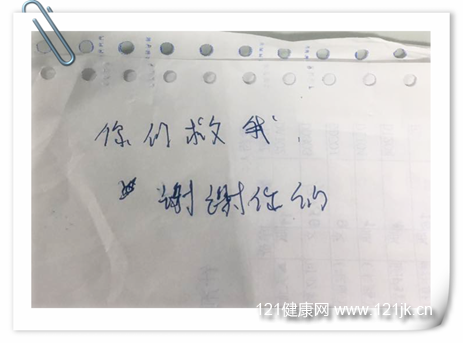 你们救我.
谢谢你的
121健康网 www.121jk.cn